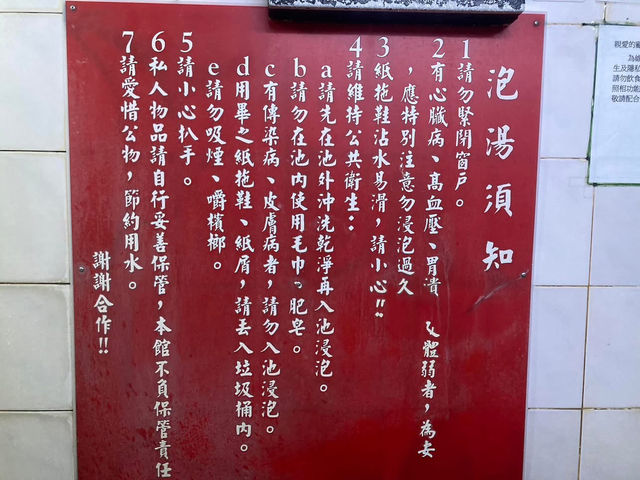 親愛的
為維
生及隱私
請勿飲食
照相功能
敬請配合
泡湯須知
1請勿緊閉窗戶。
2有心臟病、高血壓、胃潰 體弱者，為安
，應特別注意勿浸泡過久
3紙拖鞋沾水易滑，請小心!!
4請維持公共衛生：
a請先在池外沖洗乾淨再入池浸泡。
b請勿在池內使用毛巾。肥皂。
c有傳染病、皮膚病者，請勿入池浸泡。
d用畢之紙拖鞋、紙屑，請丟入垃圾桶內。
e請勿吸煙、嚼檳榔。
5請小心扒手。
6私人物品請自行妥善保管，本館不負保管責任
7請愛惜公物，節約用水。
謝謝合作!!